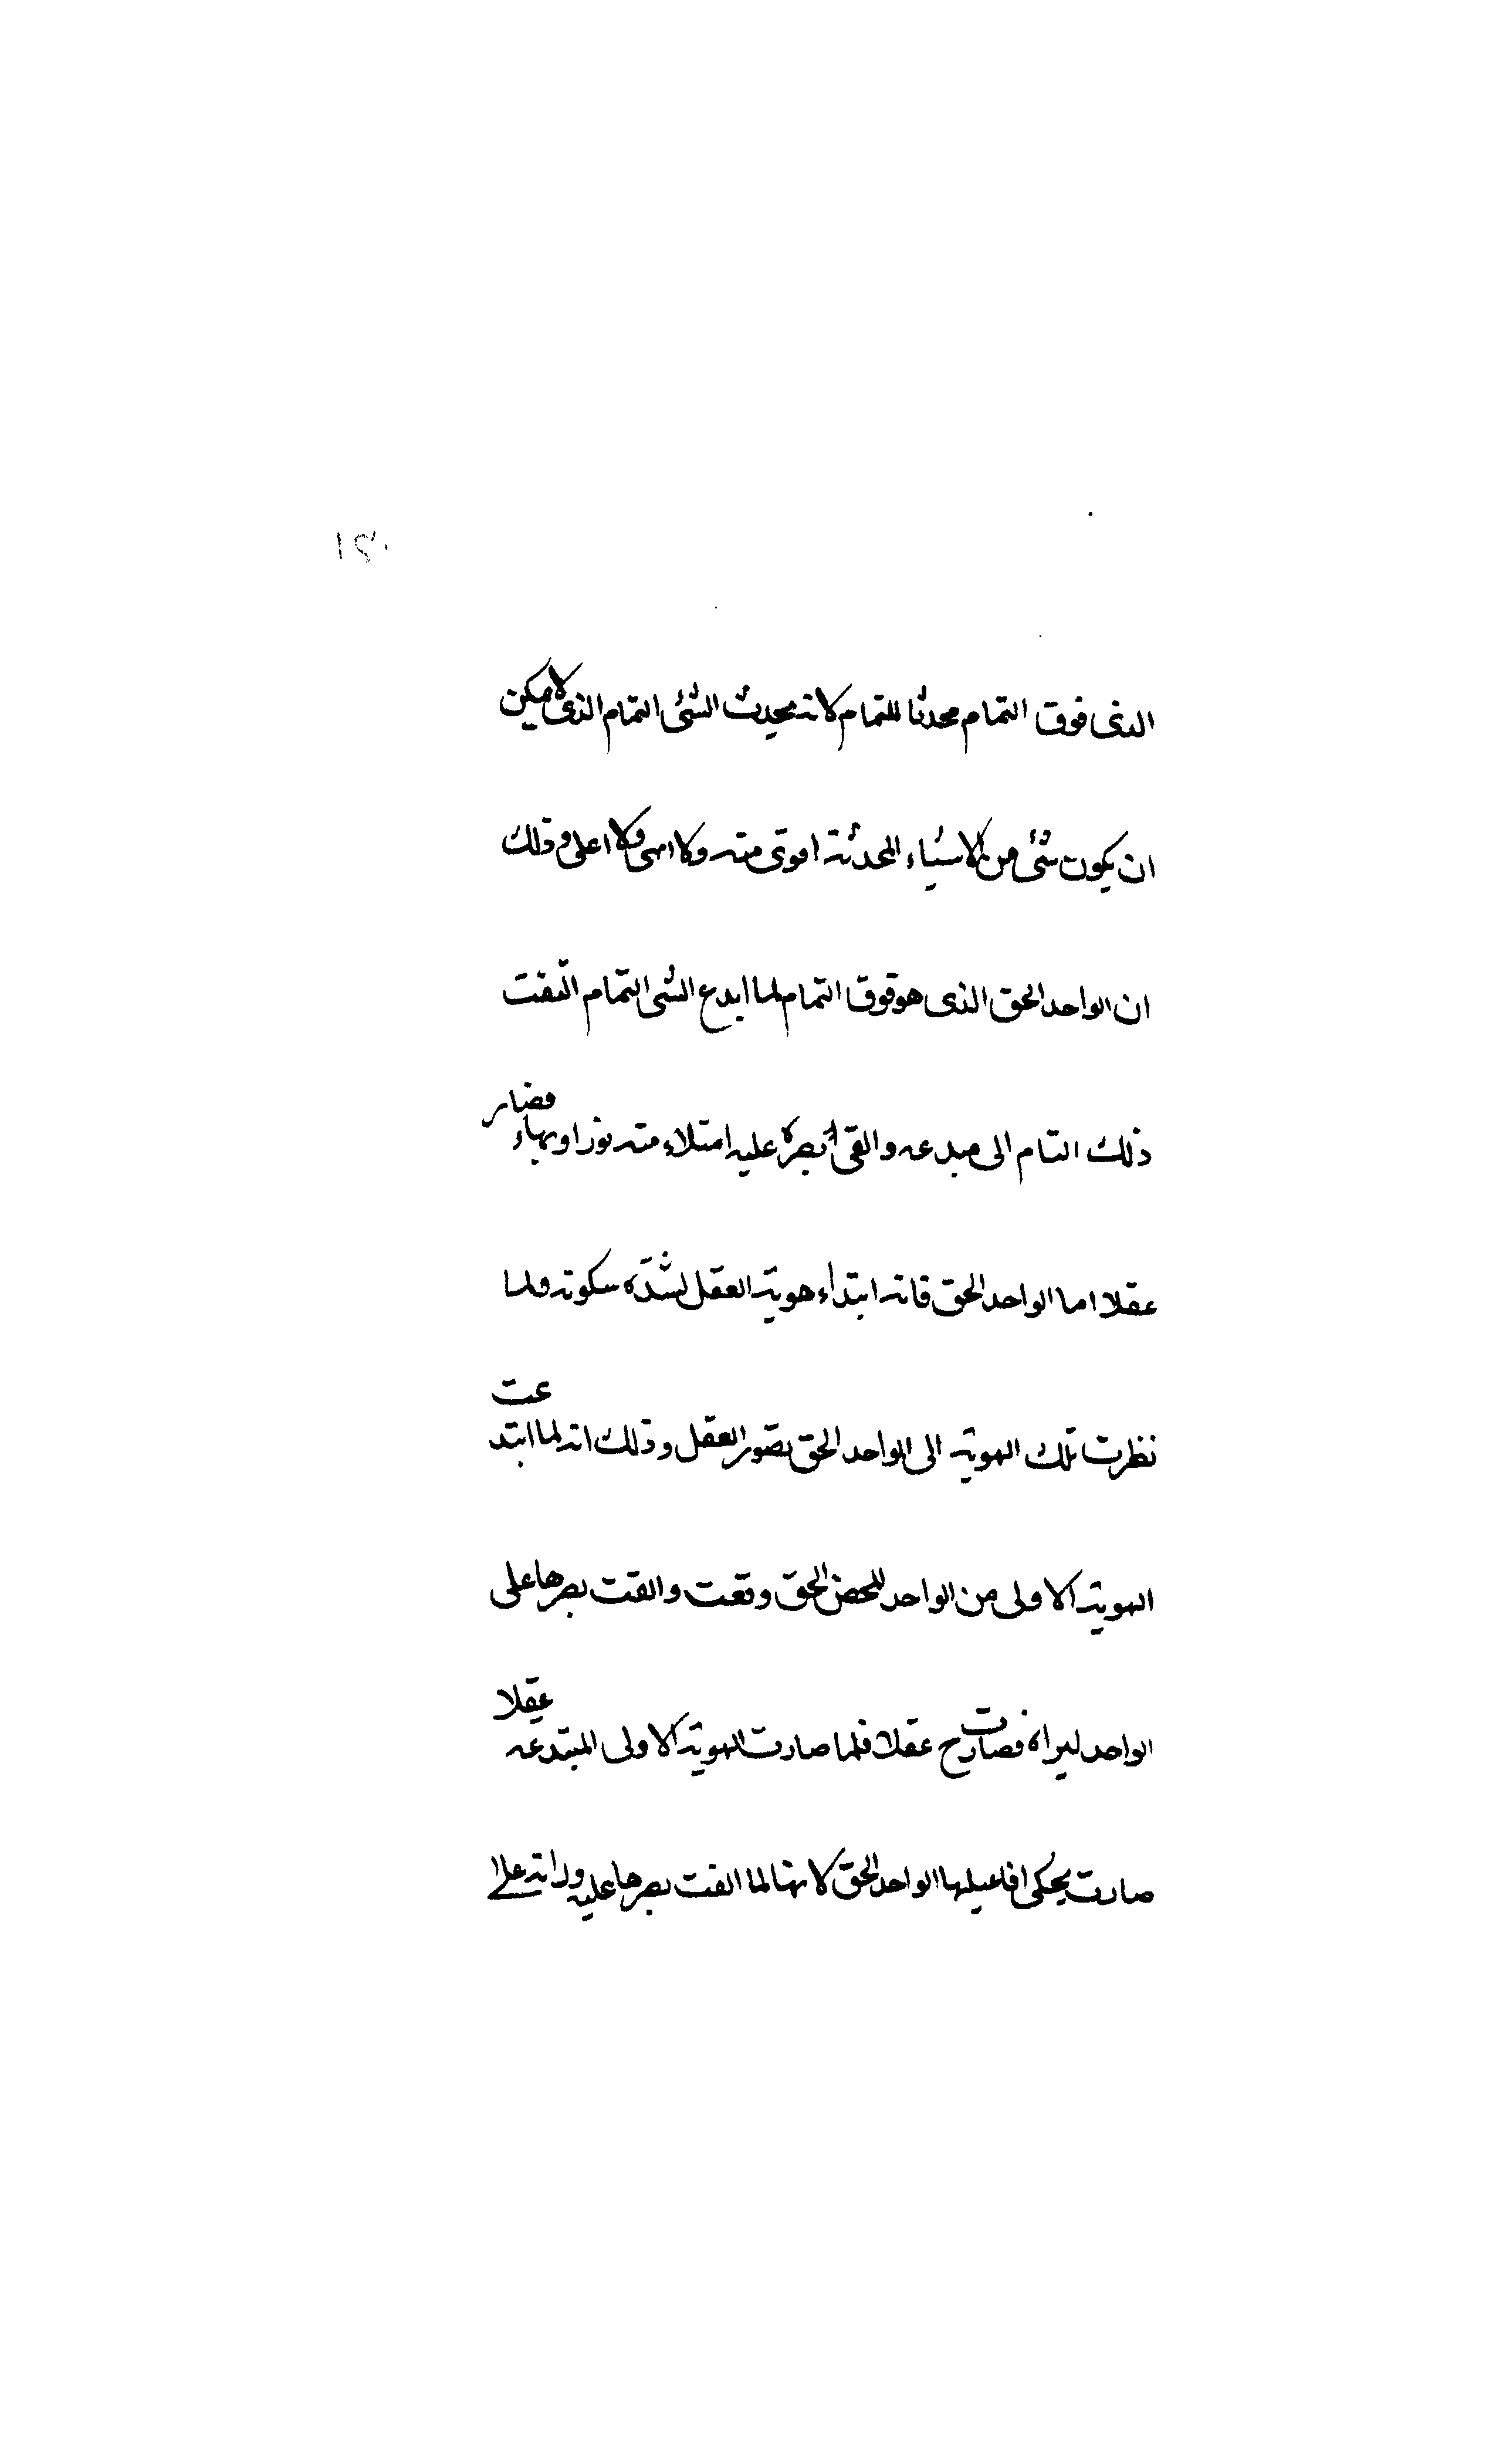 الذى فوق التمام محدثا للتمام لانه محدث الشئ التمام الذى لا يمكن
ان يكون شئ من الاشياء المحدثة اقوى منه ولا ابهى ولا اعلى وذلك
ان الواحد الحق الذى هو فوق التمام لما ابدع الشى التمام التفت
ذلك التام الى مبدعه والقى بصره عليه امتلاء منه نورا وبهاء فصار
عقلا اما الواحد الحق فانه ابتداء هوية العقل لشدة سكونه فلما
نظرت تلك الهوية الى الواحد الحق تصور العقل وذلك انه لما ابتدعت
الهوية الاولى من الواحد المحض الحق وقعت والقت بصرها على
الواحد ليراه فصارت ح عقلا فلما صارت الهوية الاولى المبتدعه عقلا
صارت يحكى افاعيلها الواحد الحق لانها لما القت بصرها عليه وراته على